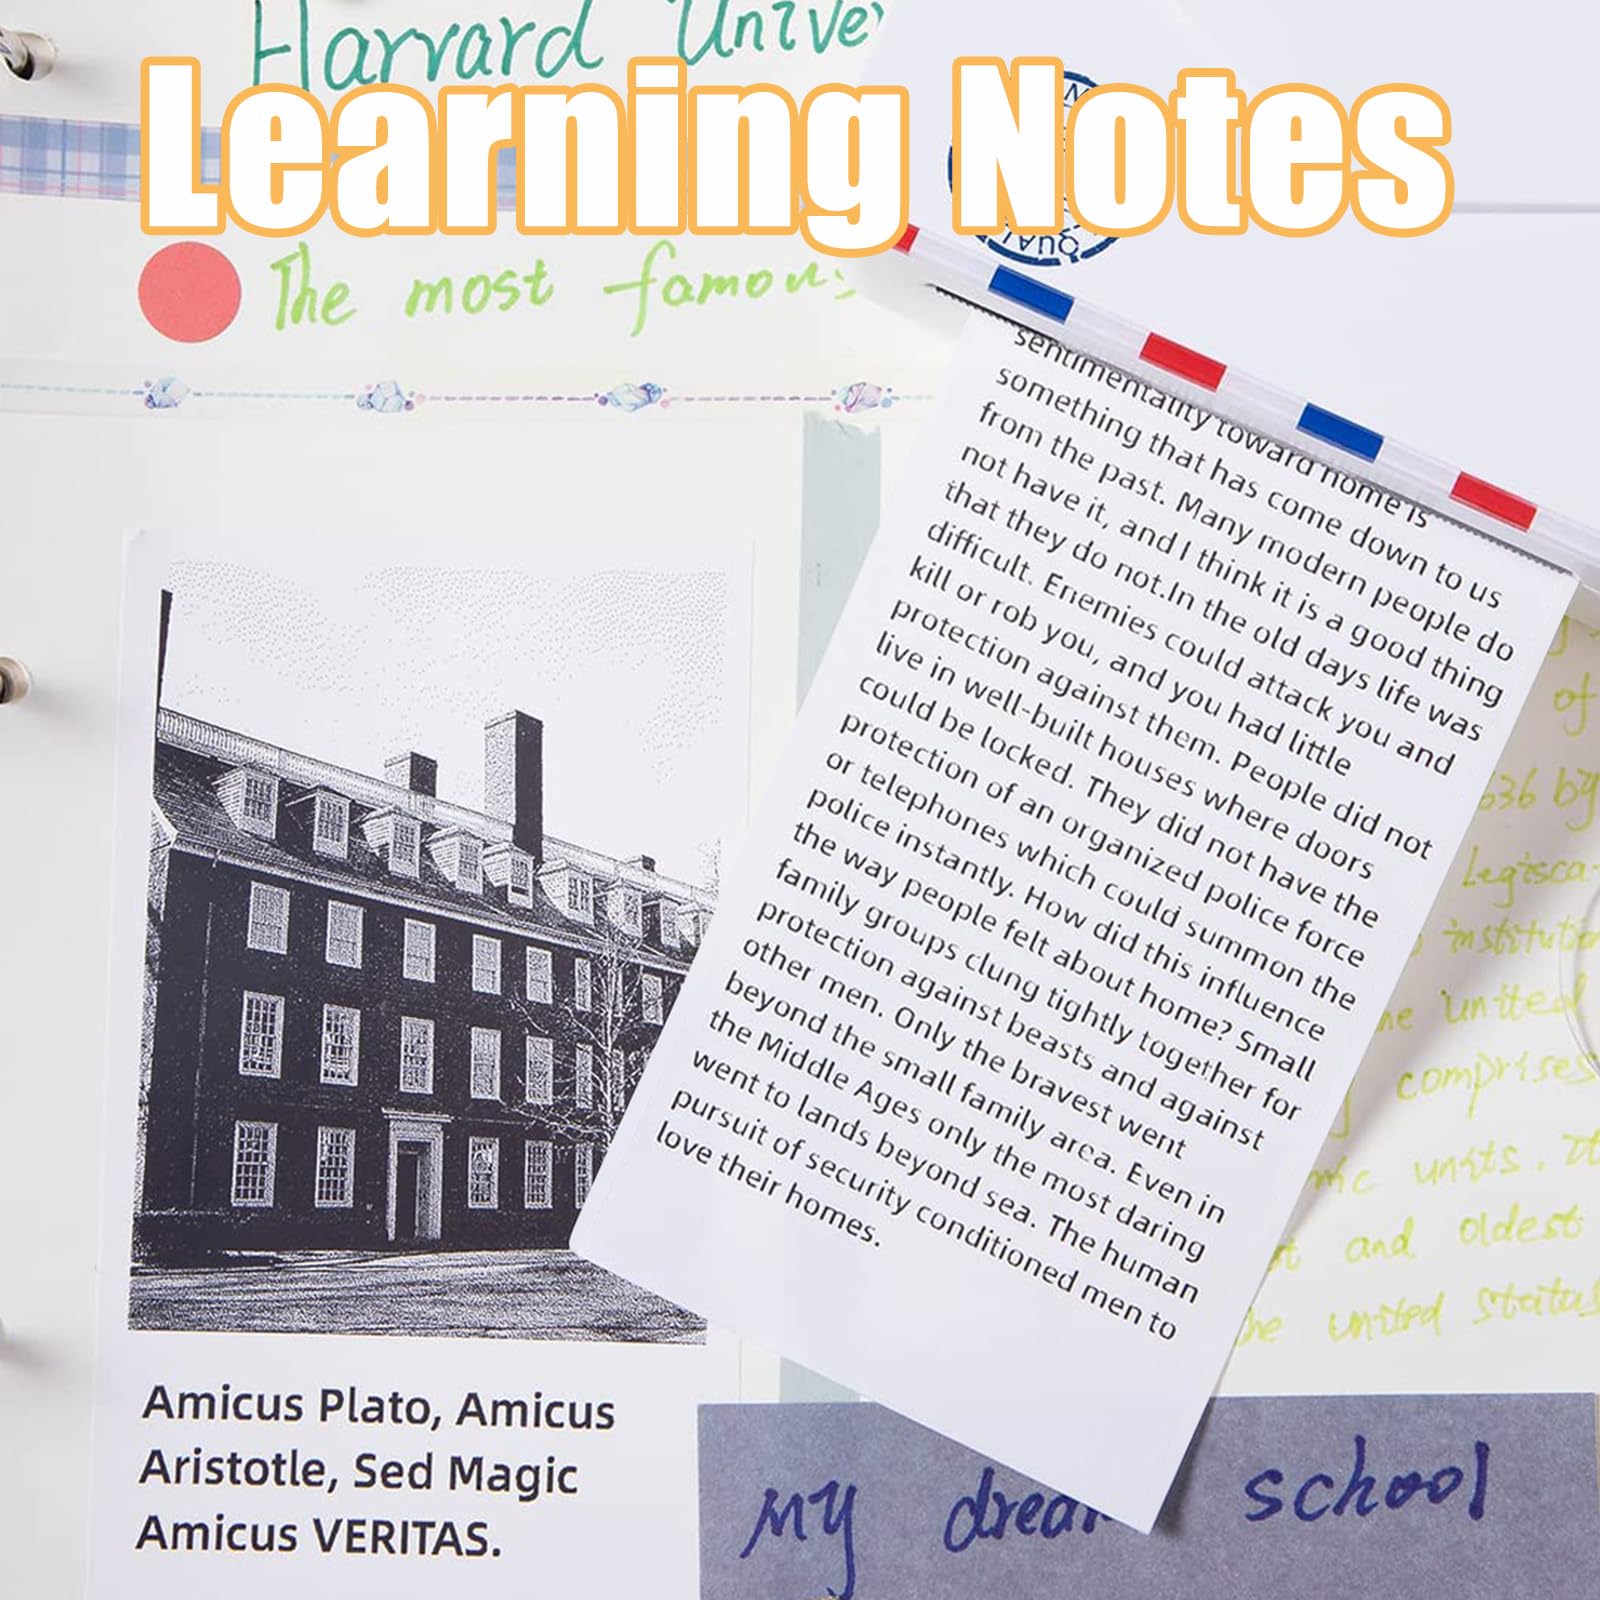 Harvard
Learning Notes
QUAL
The most famous
sentimentality toward home is
something that has come down to us
from the past. Many modern people do
not have it, and I think it is a good thing
that they do not.In the old days life was
difficult. Enemies could attack you and
kill or rob you, and you had little
protection against them. People did not
live in well-built houses where doors
could be locked. They did not have the
protection of an organized police force
or telephones which could summon the
police instantly. How did this influence
the way people felt about home? Small
family groups clung tightly together for
protection against beasts and against
other men. Only the bravest went
beyond the small family area. Even in
the Middle Ages only the most daring
went to lands beyond sea. The human
pursuit of security conditioned men to
love their homes.
of
636 by
Legisca-
institution
the United
comprises
units. It
and oldest
the united status
Amicus Plato, Amicus
Aristotle, Sed Magic
Amicus VERITAS.
My dream school